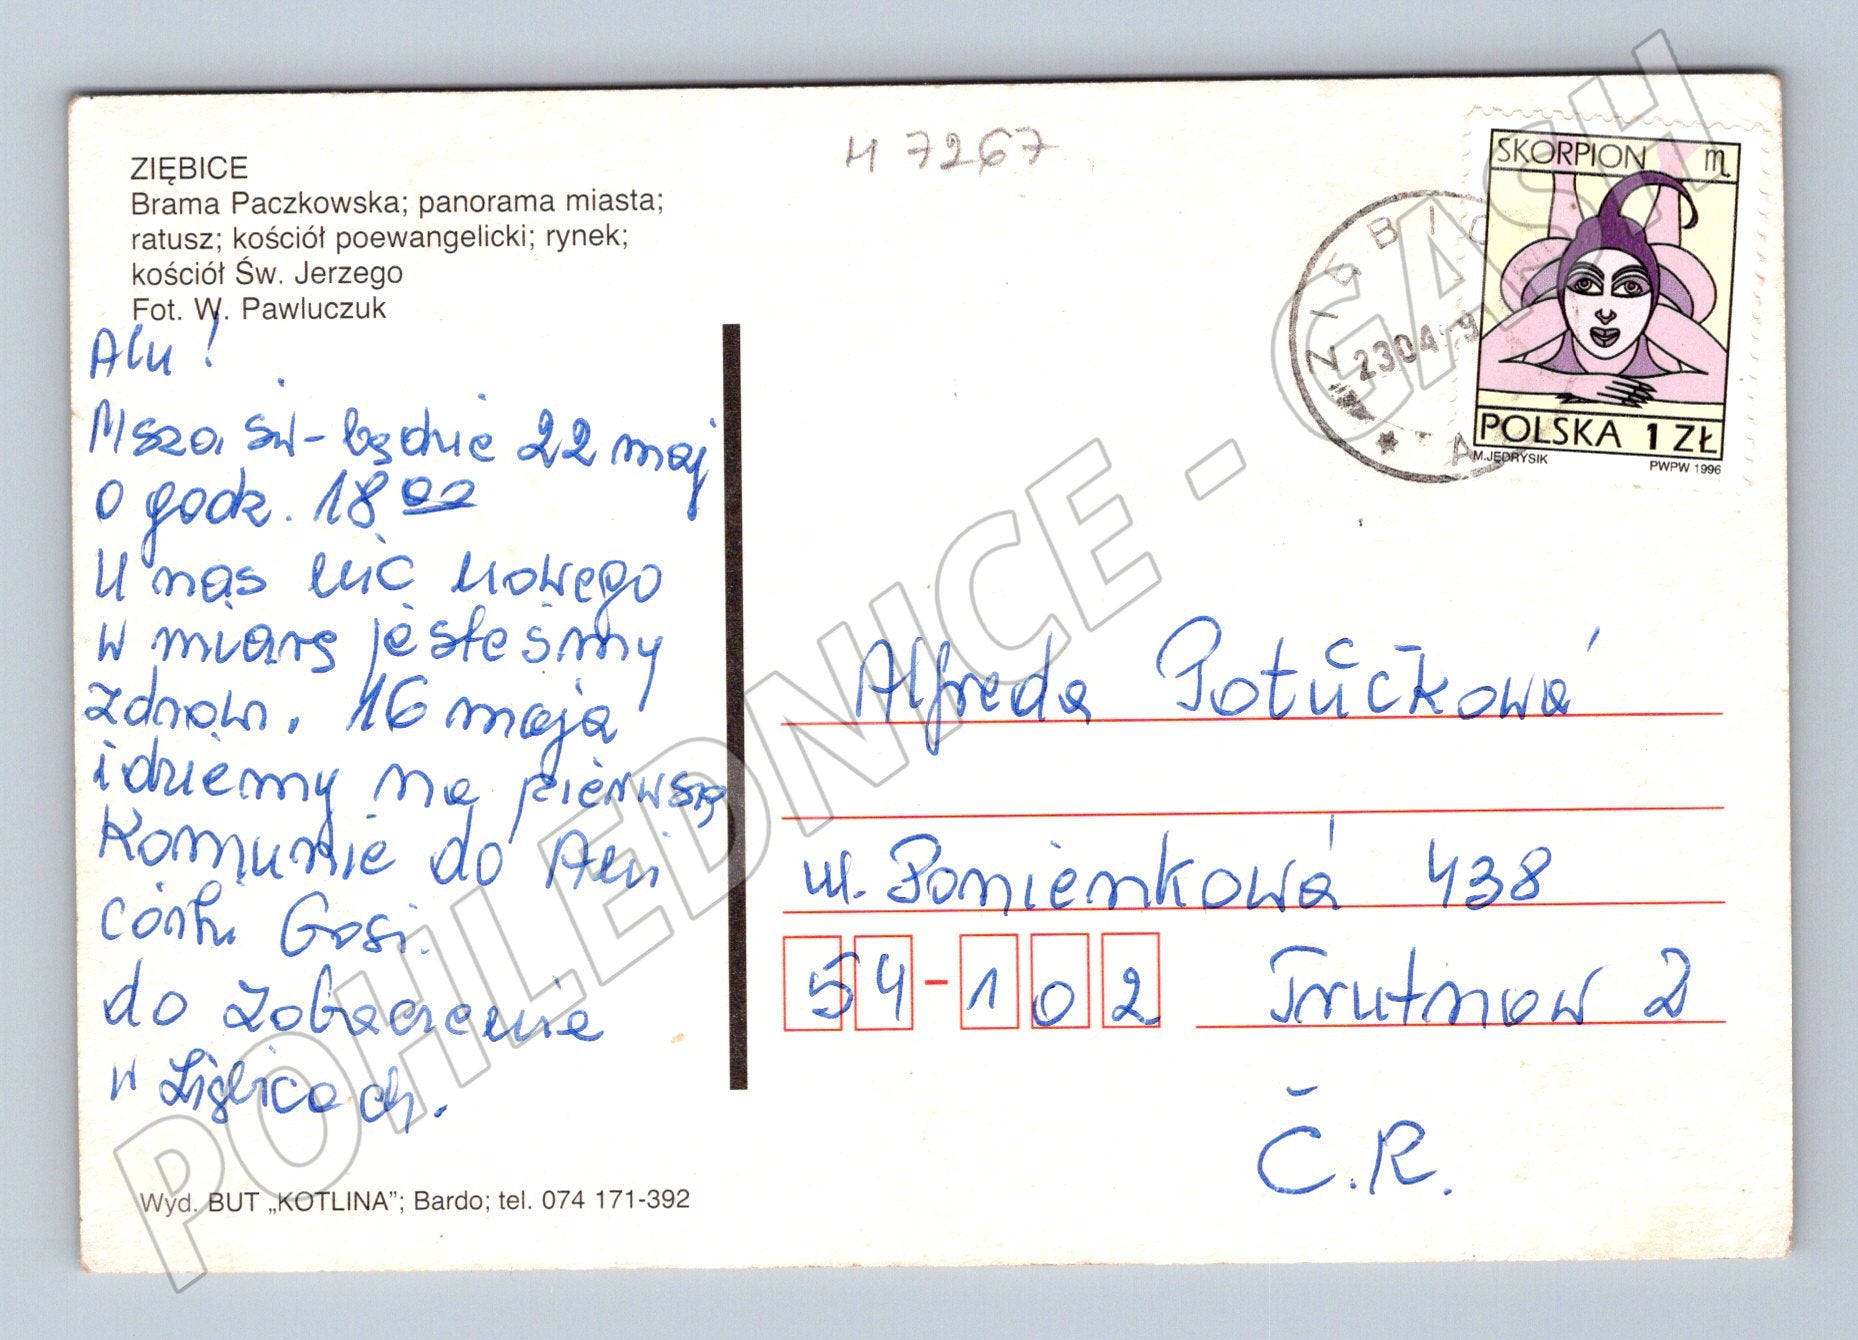 ZIĘBICE
Brama Paczkowska; panorama miasta;
ratusz; kościół poewangelicki; rynek;
kościół Św. Jerzego
Fot. W. Pawluczuk
Alu!
Msza św- będzie 22 maj
o godz. 18 00
U nas nic nowego
w miarę jesteśmy
zdrowi. 16 maja
idziemy na pierwszą
Komunie do Ali
córki Gosi.
do zobaczenia
w Ziębicach.
Wyd. BUT „KOTLINA”; Bardo; tel. 074 171-392
H 7267
ZIĘBIC
23 04 9
* A
SKORPION ♏
POLSKA 1 ZŁ
M.JĘDRYSIK PWPW 1996
Alfreda Potůčková
ul. Ponienková 438
54-102 Trutnow 2
Č.R.
POHLEDNICE - GASH